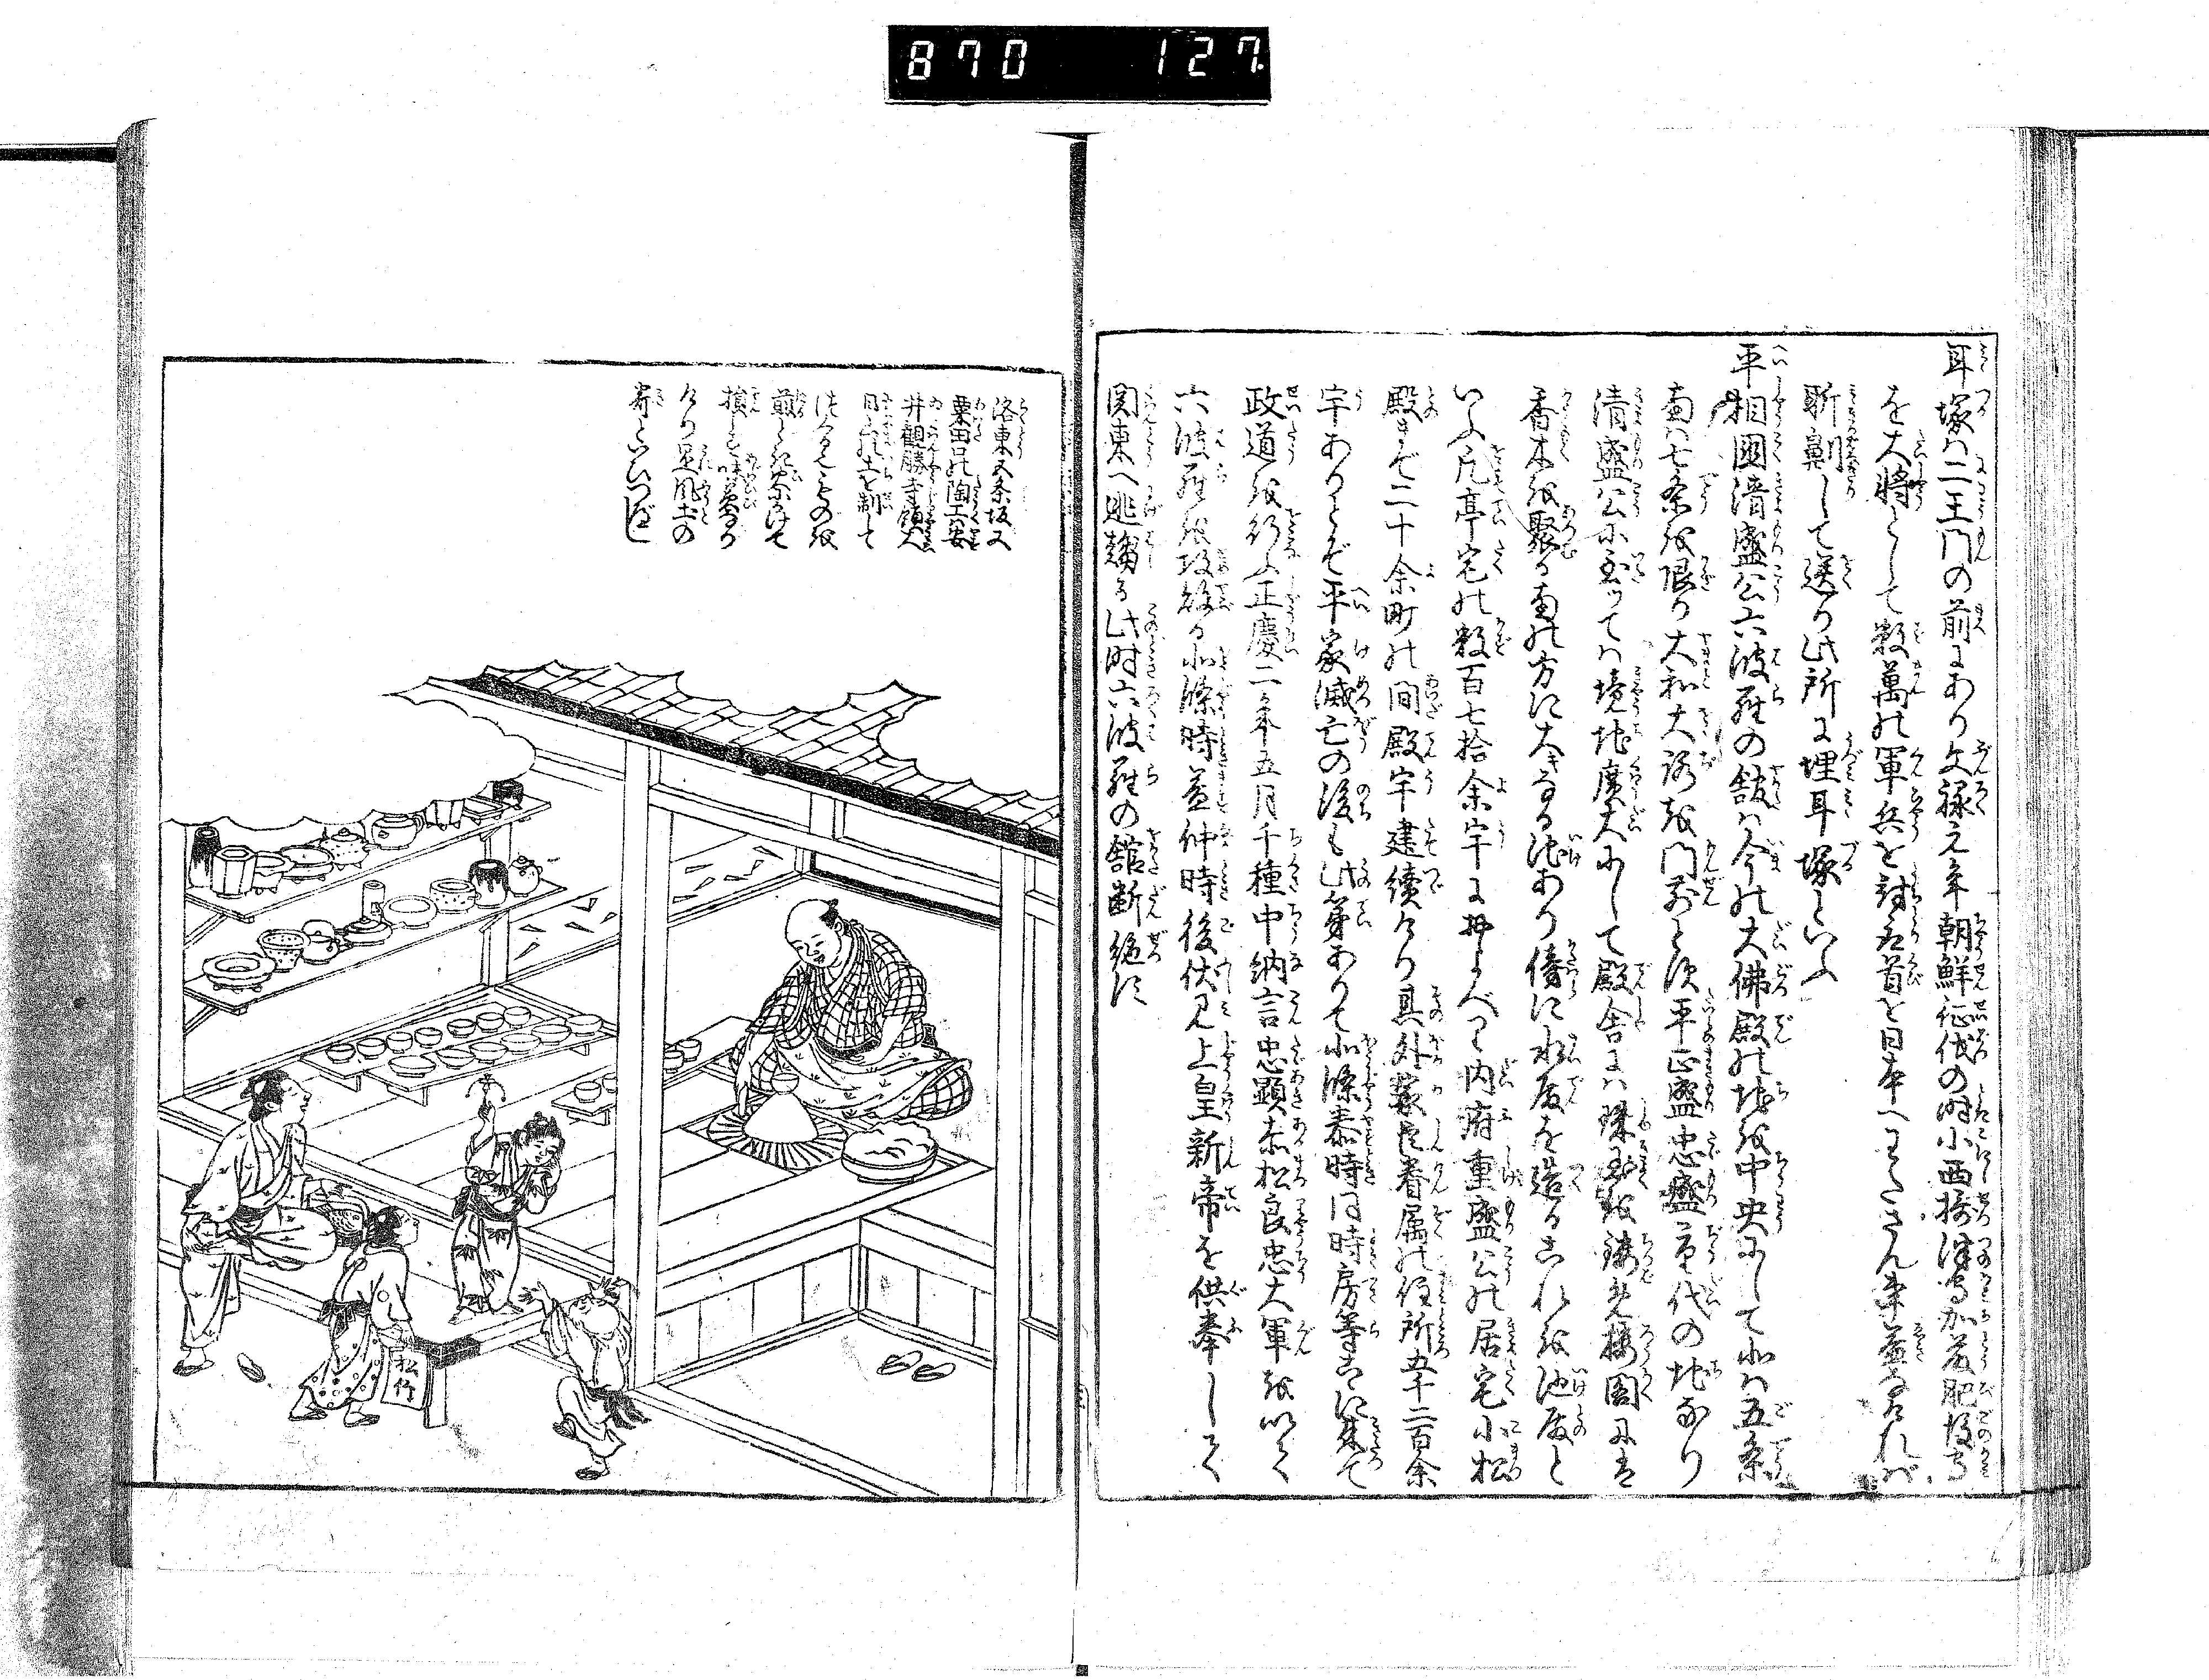 870 127
耳塚は二王門の前にあり文禄元年朝鮮征伐の時小西摂津守加藤肥後守
を大将として数萬の軍兵を討取首を日本へわたさん事益なければ
耳斬劓して送り此所に埋耳塚といふ
平相國清盛公六波羅の舘は今の大佛殿の地を中央にして北は五条
南は七条を限り大和大路を門前とす平正盛忠盛帝代の地なり
清盛公に至つては境地廣大にして殿舎には珠玉を鏤め楼閣には
香木を聚る南の方に大きなる池あり傍に水殿を造るこれを池殿と
いふ凡亭宅の数百七拾余宇に并よべり内府重盛公の居宅小松
殿まで二十余町の間殿宇建續けり其外家臣眷属の住所五千二百余
宇ありとぞ平家滅亡の後も此第ありて北條泰時同時房等こゝに来て
政道を行ふ正慶二年五月千種中納言忠顕赤松良忠大軍を以て
六波羅を攻落る北條時益仲時後伏見上皇新帝を供奉して
関東へ逃趨る此時六波羅の舘断絶す
洛東五条坂又
粟田の陶工安
井觀勝寺領大
日山の土を制して
つくるものを
前とし茶わけて
損しを
けり是風土の
奇といひつべし
松作